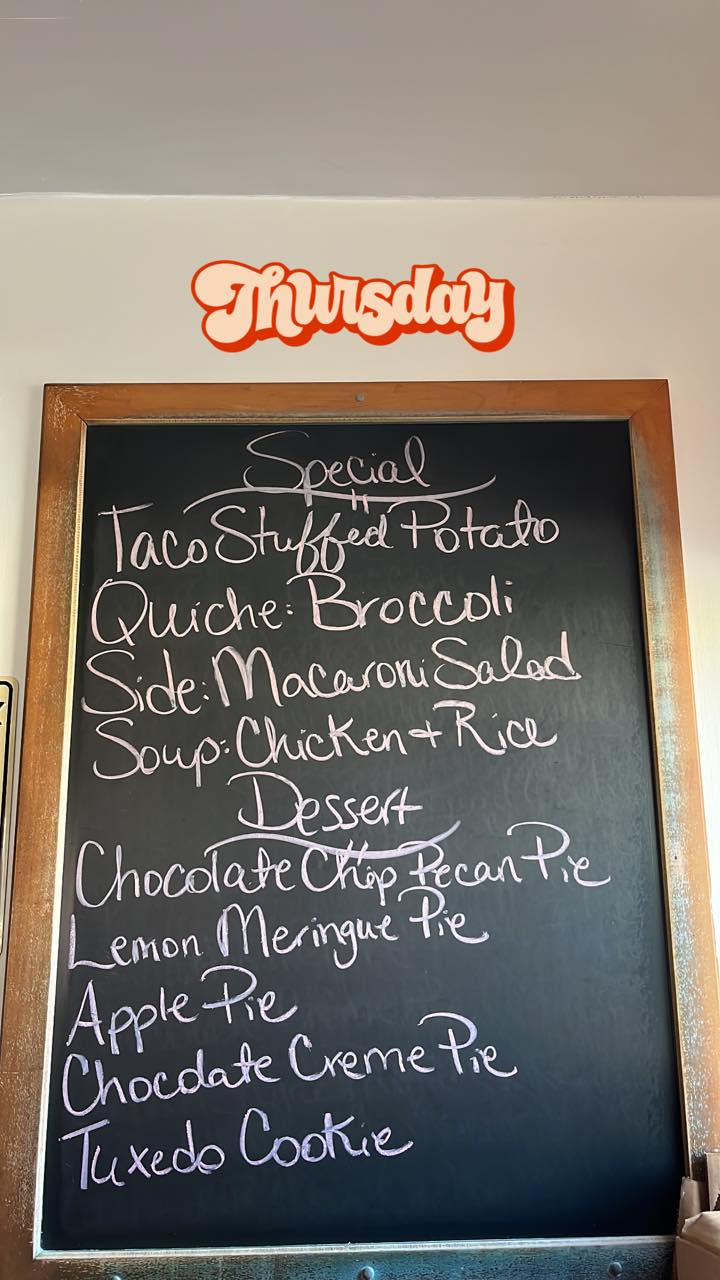 Thursday
Special
Taco Stuffed Potato
Quiche: Broccoli
Side: Macaroni Salad
Soup: Chicken + Rice
Dessert
Chocolate Chip Pecan Pie
Lemon Meringue Pie
Apple Pie
Chocolate Creme Pie
Tuxedo Cookie